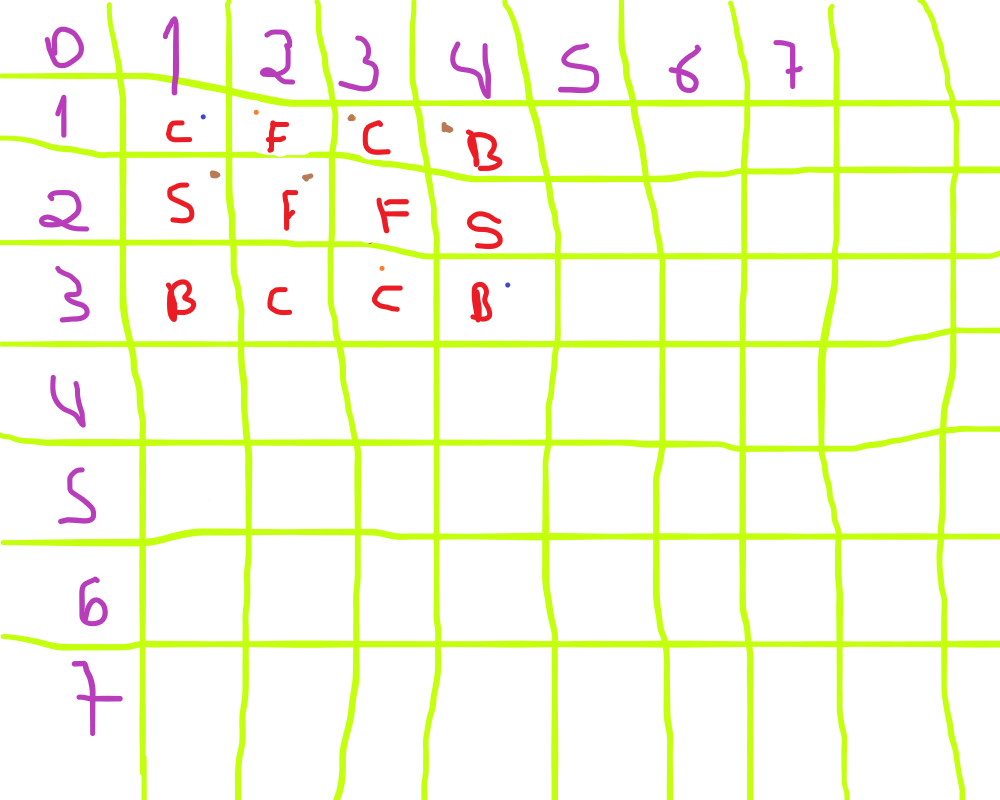 0 1 2 3 4 5 6 7
1 C F C B
2 S F F S
3 B C C B
4
5
6
7